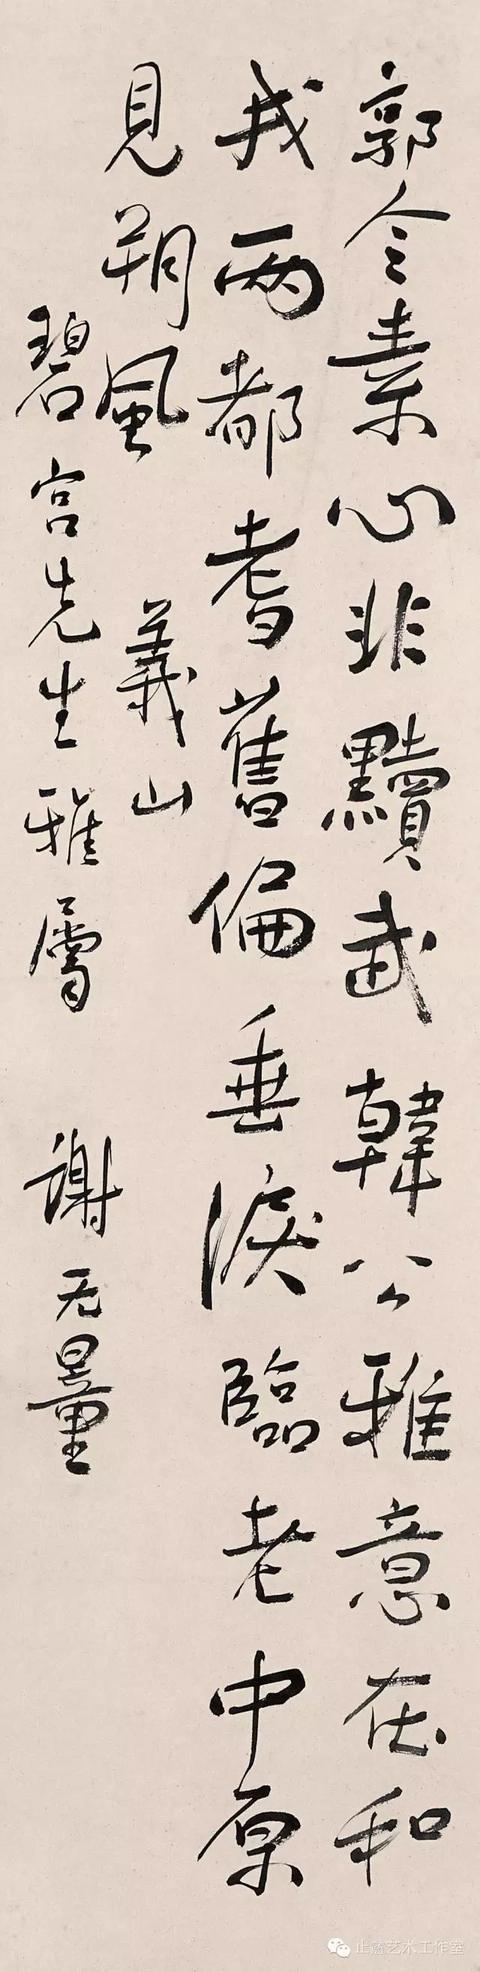 郭令素心非黷武韓公雅意在和
戎两都耆舊偏垂淚臨老中原
見朔風 義山
碧宮先生雅屬 謝无量
艺术工作室